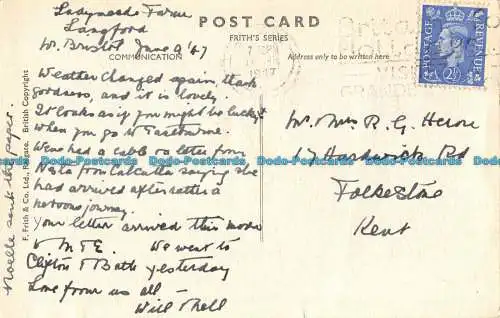 Ladymeads Farm
Langford
Nr. Bristol June 9 '47
POST CARD
FRITH'S SERIES
COMMUNICATION
Address only to be written here
POSTAGE
REVENUE
2½
Weather changed again, thank
goodness, and it is lovely.
It looks as if you might be lucky
when you go to Eastbourne.
We've had a cable or letter from
from Calcutta saying she
had arrived after rather a
journey.
Your letter arrived this
to M & E. We went to
Clifton & Bath yesterday
Love from us all —
Will & Nell
Noelle sent the paper.
F. Frith & Co. Ltd., Reigate. British Copyright
Mr. Mrs R. G. Heron
17 Hardwick Rd
Folkestone
Kent
Dodo-Postcards Dodo-Postcards Dodo-Postcards Dodo-Postcards Dodo-Postcards